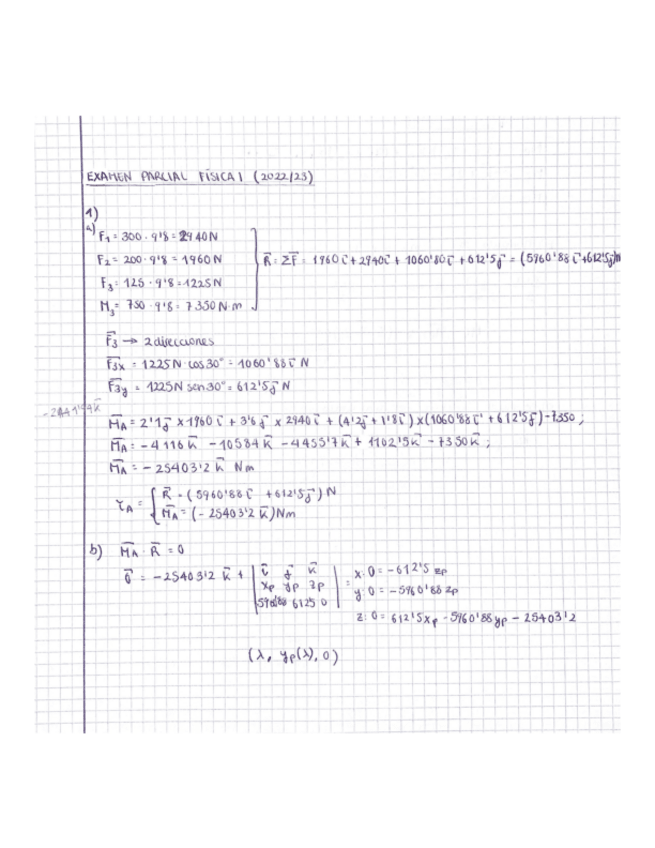 EXAMEN PARCIAL FÍSICA I (2022/23)
1)
a)
F₁ = 300 · 9'8 = 2940 N
F₂ = 200 · 9'8 = 1960 N
F₃ = 125 · 9'8 = 1225 N
M₃ = 750 · 9'8 = 7350 N·m
R⃗ = ΣF⃗ = 1960 i⃗ + 2940 i⃗ + 1060'80 i⃗ + 612'5 j⃗ = (5960'88 i⃗ + 612'5 j⃗) N
F⃗₃ → 2 direcciones
F⃗₃ₓ = 1225 N · cos 30° = 1060'88 i⃗ N
F⃗₃y = 1225 N sen 30° = 612'5 j⃗ N
M⃗A = 2'1 j⃗ × 1960 i⃗ + 3'6 j⃗ × 2940 i⃗ + (4'2 j⃗ + 1'8 i⃗) × (1060'88 i⃗ + 612'5 j⃗) - 7350 ;
M⃗A = - 4116 k⃗ - 10584 k⃗ - 4455'7 k⃗ + 1102'5 k⃗ - 7350 k⃗ ;
M⃗A = - 25403'2 k⃗ Nm
τA = { R⃗ = (5960'88 i⃗ + 612'5 j⃗) N
M⃗A = (- 25403'2 k⃗) Nm
b) M⃗A · R⃗ = 0
0⃗ = - 25403'2 k⃗ + | i⃗ j⃗ k⃗ | = x: 0 = - 612'5 zp
| xp yp zp | y: 0 = - 5960'88 zp
| 5960'88 612'5 0 | z: 0 = 612'5 xp - 5960'88 yp - 25403'2
(λ, yp(λ), 0)